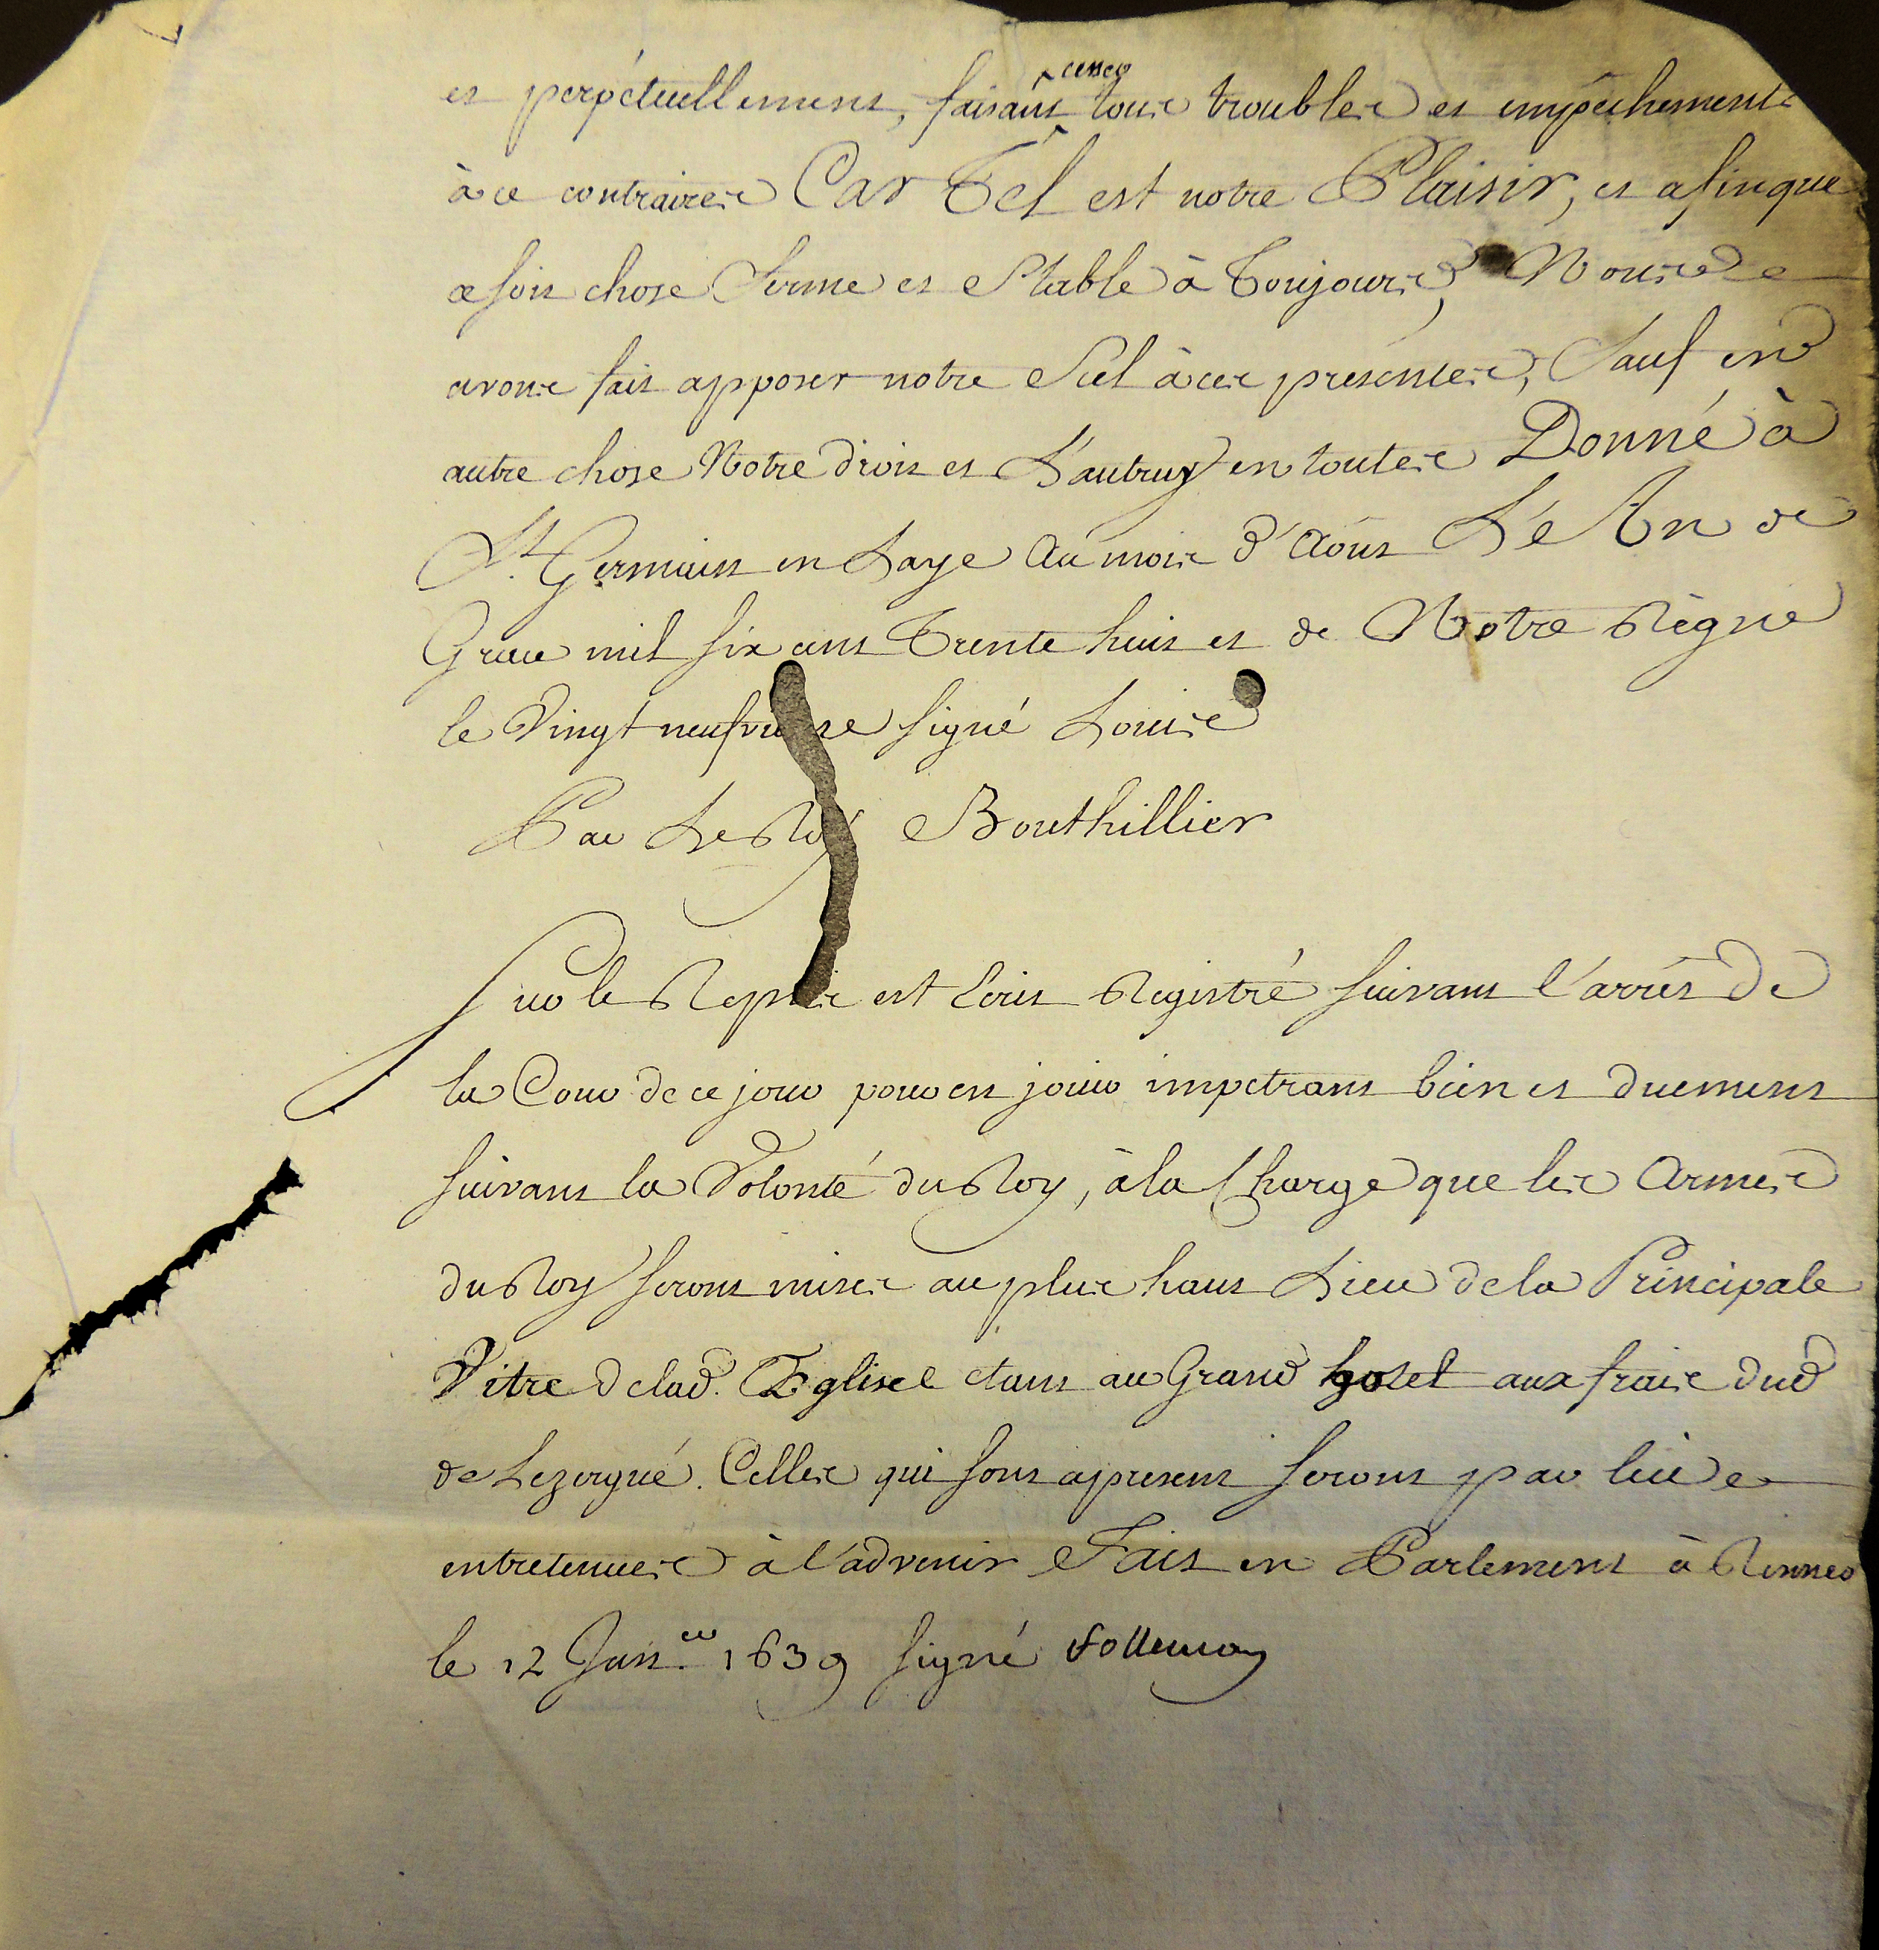 et perpétuellement, faisant cesser tous troubles et empêchements
à ce contraires Car Tel est notre Plaisir, et afin que
ce soit chose ferme et stable à Toujours, Nous
avons fait apposer notre Scel à ces présentes, Sauf en
autre chose Notre droit et L'autruy en toutes Donné à
St. Germain en Laye Au mois d'Aout L'An de
Grace mil six cens Trente huit et de Notre Règne
le Vingt neufvieme signé Louis
Par Le Roy Bouthillier
Sur le Replis est Ecrit Registré suivant l'arrêt De
la Cour de ce jour pour en jouir impetrant bien et duement
suivant la Volonté du Roy, à la Charge que les Armes
du Roy seront mises au plus haut Lieu de la Principale
Vitre de lad. Eglise étant au Grand hotel aux frais dud
de Lezergué. Celles qui sont apresent seront par lui
entretenues à l'advenir Fait en Parlement à Rennes
le 12 Janer. 1639 signé